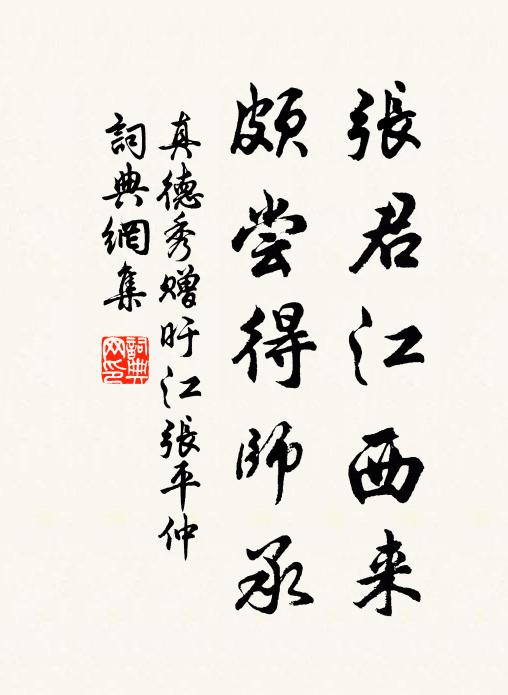 張君江西来
頗尝得師承
真德秀贈旴江張平仲
詞典網集
詞典網印